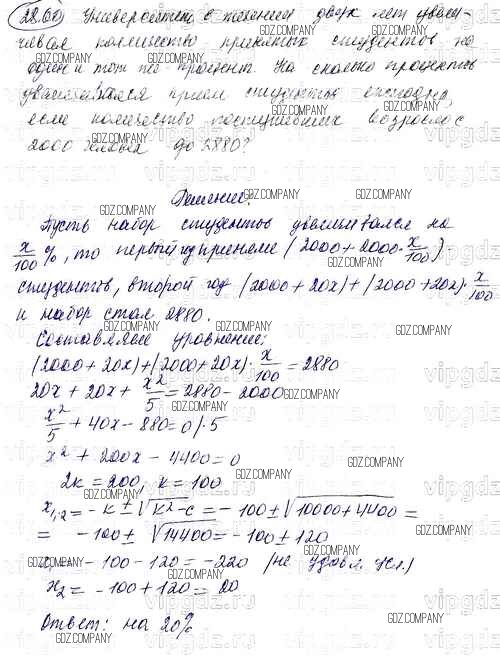 28.60 Университет в течение двух лет увели-
чивал количество принятых студентов на
один и тот же процент. На сколько процентов
увеличивался прием студентов ежегодно,
если количество поступивших возросло с
2000 человек до 2880?
Решение.
Пусть набор студентов увеличивался на
x/100 %, то первый год приняли (2000+2000·x/100)
студентов, второй год (2000+20x)+(2000+20x)·x/100
и набор стал 2880.
Составляем уравнение:
(2000+20x)+(2000+20x)·x/100=2880
20x+20x+x²/5=2880-2000
x²/5+40x-880=0/·5
x²+200x-4400=0
2k=200, k=100
x₁,₂=-k±√k²-c=-100±√10000+4400=
=-100±√14400=-100±120
-100-120=-220 (не удовл. усл.)
x₂=-100+120=20
Ответ: на 20%
GDZ.COMPANY
vipgdz.ru